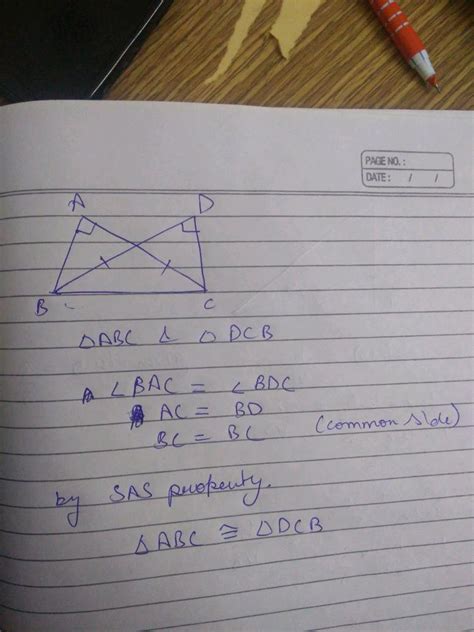 PAGE NO. :
DATE : / /
A D
B C
△ABC & △DCB
∠BAC = ∠BDC
AC = BD
BC = BC (common side)
by SAS property.
△ABC ≅ △DCB